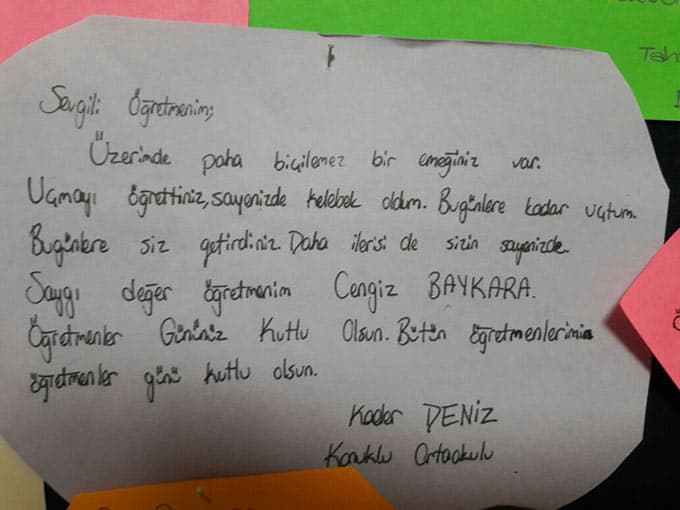 Sevgili Öğretmenim;
Üzerimde paha biçilemez bir emeğiniz var.
Uçmayı öğrettiniz, sayenizde kelebek oldum. Bugünlere kadar uçtum.
Bugünlere siz getirdiniz. Daha ilerisi de sizin sayenizde.
Saygı değer öğretmenim Cengiz BAYKARA.
Öğretmenler Gününüz Kutlu Olsun. Bütün öğretmenlerimin
öğretmenler günü kutlu olsun.
Kader DENİZ
Konuklu Ortaokulu